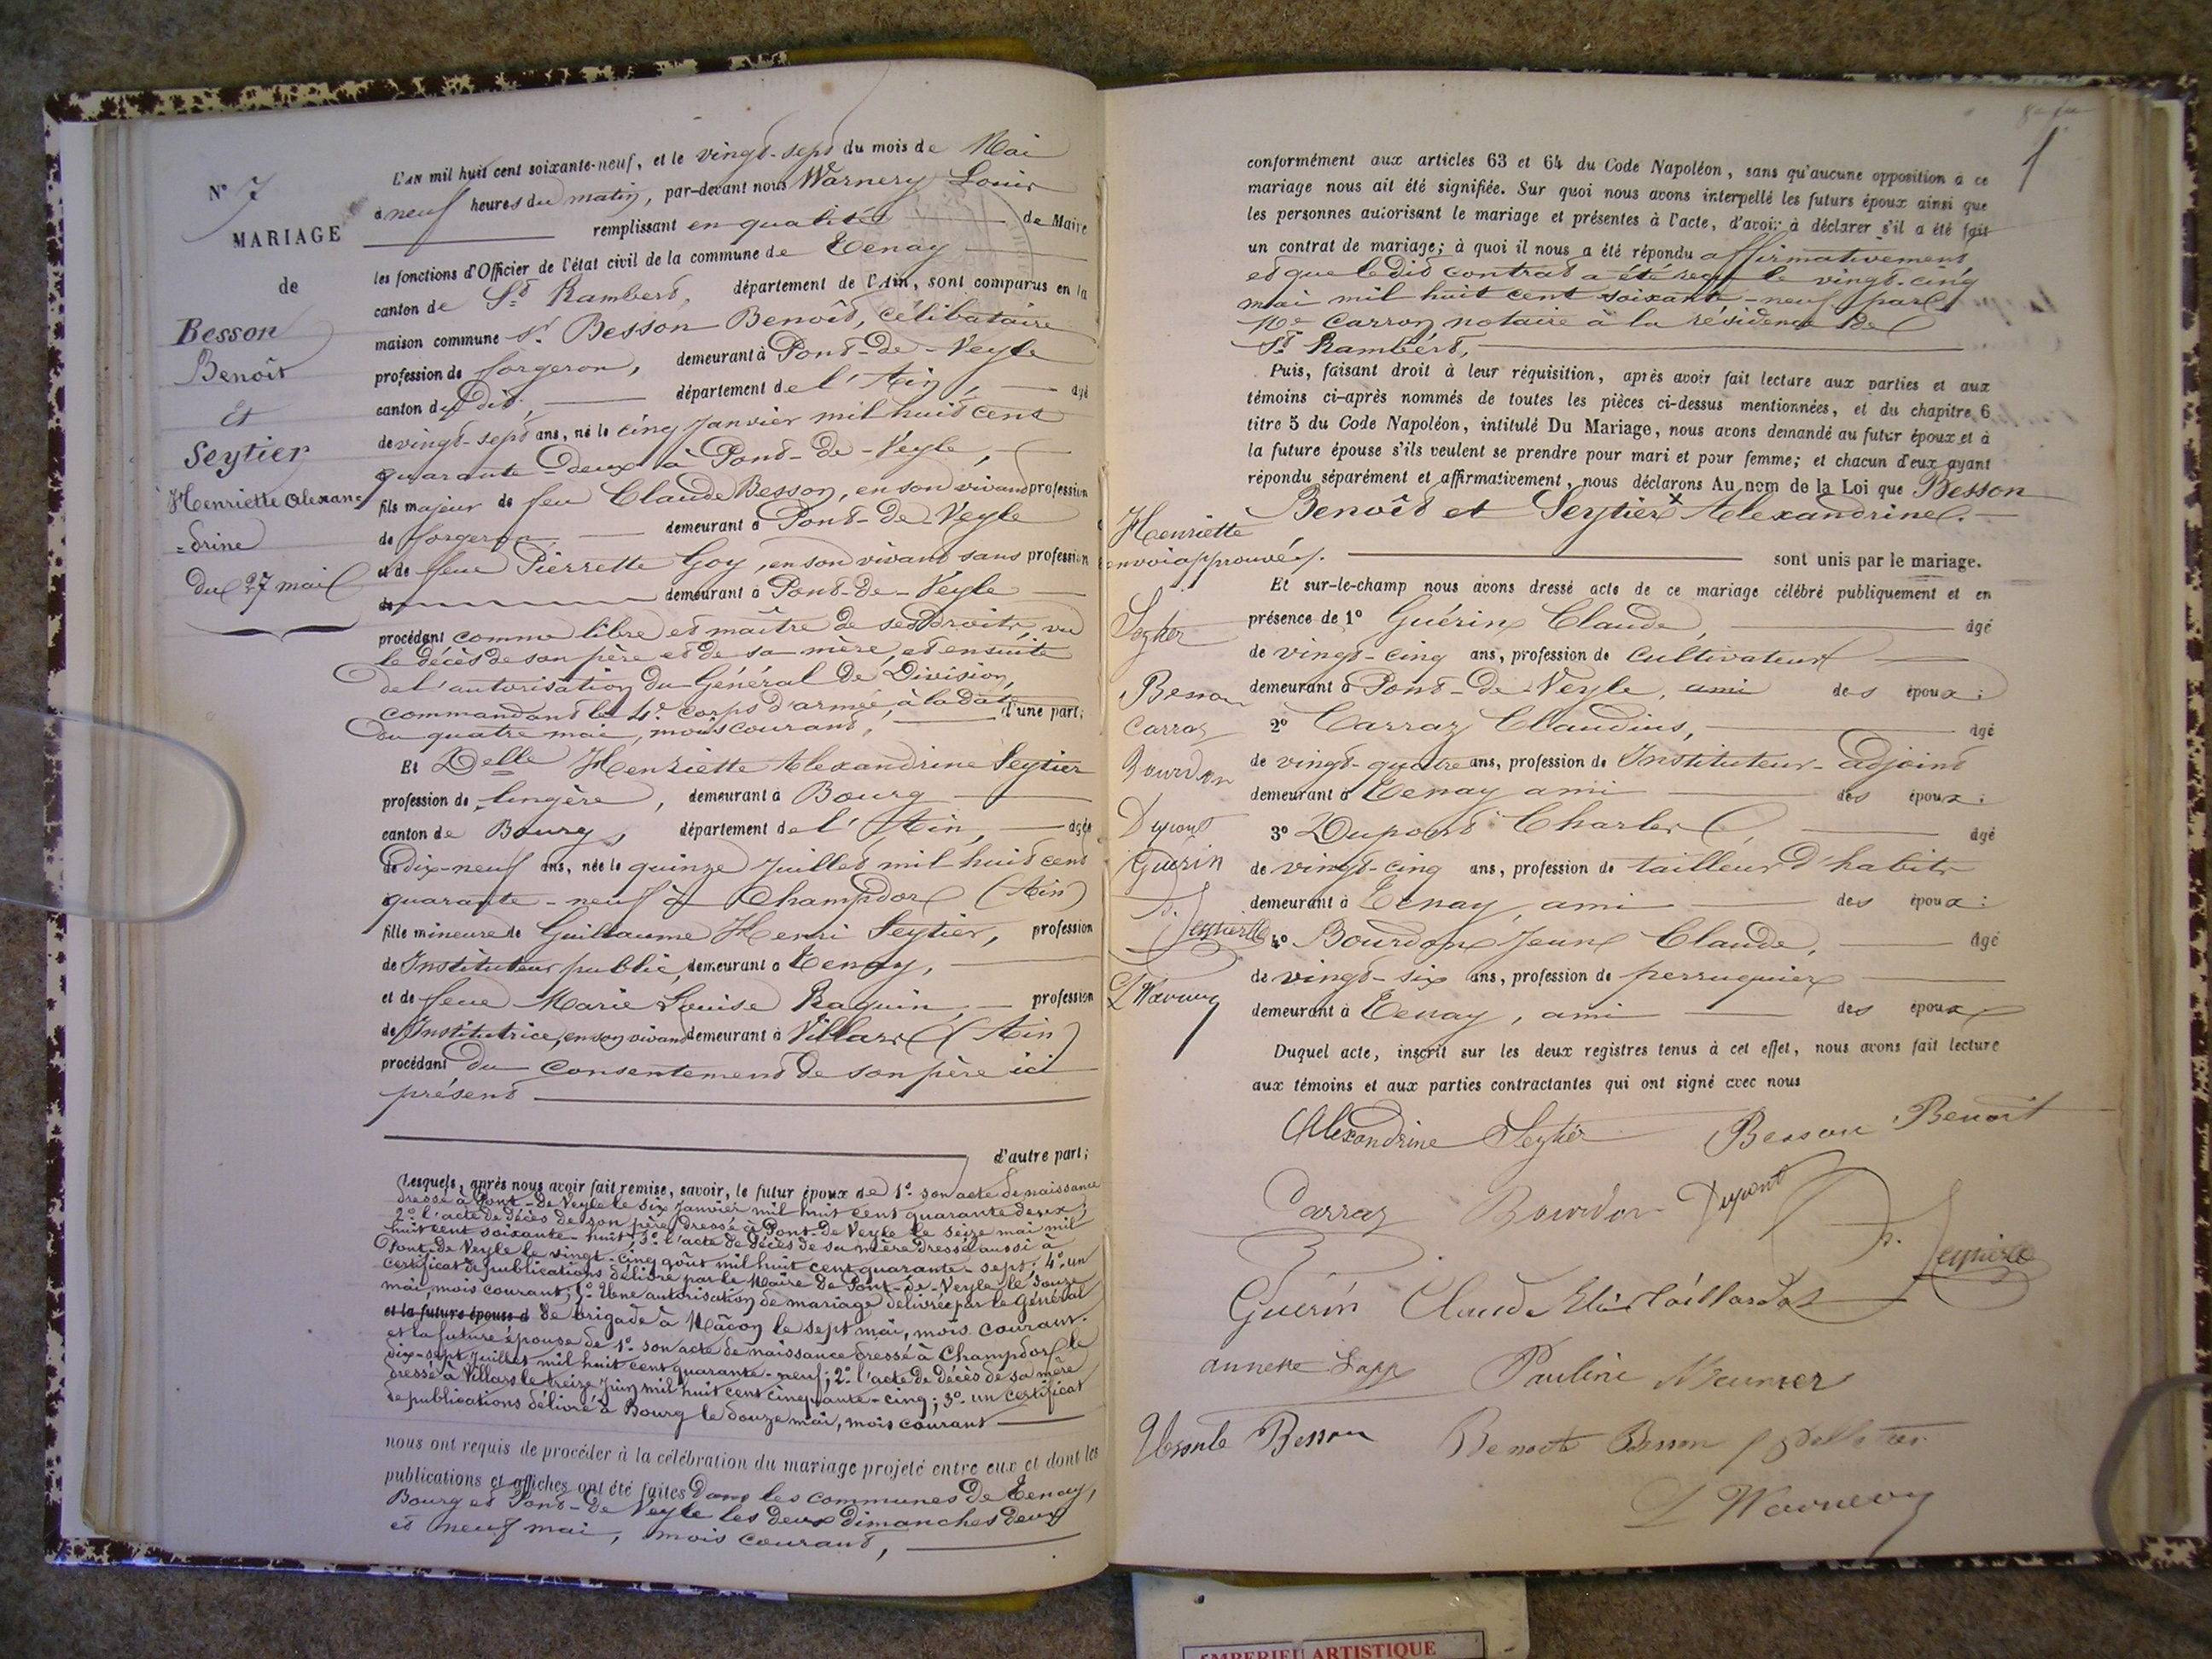 N° 7
MARIAGE
de
Besson
Benoît
Et
Seytier
Henriette Alexan
=drine
Du 27 mai
L'AN mil huit cent soixante-neuf, et le vingt-sept du mois de Mai
à neuf heures du matin, par-devant nous Warnery Louis
remplissant en qualité de Maire
les fonctions d'Officier de l'état civil de la commune de Tenay
canton de St Rambert, département de l'Ain, sont comparus en la
maison commune Sr Besson Benoît, célibataire
profession de forgeron, demeurant à Pont-de-Veyle
canton du dit, département de l'Ain, âgé
de vingt-sept ans, né le cinq Janvier mil huit cent
quarante-deux à Pont-de-Veyle,
fils majeur de feu Claude Besson, en son vivant profession
de forgeron demeurant à Pont-de-Veyle
et de feue Pierrette Goy, en son vivant sans profession
de demeurant à Pont-de-Veyle
procédant comme libre et maître de ses droits, vu
le décès de son père et de sa mère, et ensuite
de l'autorisation du Général de Division,
commandant le 4e corps d'armée, à la date
du quatre mai, mois courant, d'une part;
Et Delle Henriette Alexandrine Seytier
profession de lingère, demeurant à Bourg
canton de Bourg, département de l'Ain, âgée
de dix-neuf ans, née le quinze Juillet mil huit cent
quarante-neuf à Champdor (Ain)
fille mineure de Guillaume Henri Seytier, profession
de Instituteur public, demeurant à Tenay,
et de feue Marie Louise Raquin, profession
de Institutrice, en son vivant demeurant à Villars (Ain)
procédant du consentement de son père ici
présent
d'autre part;
Lesquels, après nous avoir fait remise, savoir, le futur époux de 1° son acte de naissance
dressé à Pont-de-Veyle le six Janvier mil huit cent quarante deux;
2° l'acte de décès de son père dressé à Pont-de-Veyle le seize mai mil
huit cent soixante-huit; 3° l'acte de décès de sa mère dressé aussi à
Pont-de-Veyle le vingt-cinq août mil huit cent quarante-sept; 4° un
certificat de publications délivré par le Maire de Pont-de-Veyle le douze
mai, mois courant; 5° Une autorisation de mariage délivrée par le Général
et la future épouse d de brigade à Mâcon le sept mai, mois courant.
et la future épouse de 1° son acte de naissance dressé à Champdor le
dix-sept Juillet mil huit cent quarante-neuf; 2° l'acte de décès de sa mère
dressé à Villars le treize Juin mil huit cent cinquante-cinq; 3° un certificat
de publications délivré à Bourg le douze mai, mois courant
nous ont requis de procéder à la célébration du mariage projeté entre eux et dont les
publications et affiches ont été faites dans les communes de Tenay,
Bourg et Pont-de-Veyle les deux dimanches deux
et neuf mai, mois courant,
conformément aux articles 63 et 64 du Code Napoléon, sans qu'aucune opposition à ce
mariage nous ait été signifiée. Sur quoi nous avons interpellé les futurs époux ainsi que
les personnes autorisant le mariage et présentes à l'acte, d'avoir à déclarer s'il a été fait
un contrat de mariage; à quoi il nous a été répondu affirmativement
et que ledit contrat a été reçu le vingt-cinq
mai mil huit cent soixante-neuf par
Me Carron notaire à la résidence de
St Rambert,
Puis, faisant droit à leur réquisition, après avoir fait lecture aux parties et aux
témoins ci-après nommés de toutes les pièces ci-dessus mentionnées, et du chapitre 6
titre 5 du Code Napoléon, intitulé Du Mariage, nous avons demandé au futur époux et à
la future épouse s'ils veulent se prendre pour mari et pour femme; et chacun d'eux ayant
répondu séparément et affirmativement, nous déclarons Au nom de la Loi que Besson
Benoît et Seytier x Alexandrine.
sont unis par le mariage.
Et sur-le-champ nous avons dressé acte de ce mariage célébré publiquement et en
présence de 1° Guérin Claude, âgé
de vingt-cinq ans, profession de cultivateur
demeurant à Pont-de-Veyle, ami des époux;
2° Carraz Claudius, âgé
de vingt-quatre ans, profession de Instituteur-adjoint
demeurant à Tenay ami des époux;
3° Dupont Charles, âgé
de vingt-cinq ans, profession de tailleur d'habits
demeurant à Tenay, ami des époux:
4° Bourdon Jean Claude, âgé
de vingt-six ans, profession de perruquier
demeurant à Tenay, ami des époux
Duquel acte, inscrit sur les deux registres tenus à cet effet, nous avons fait lecture
aux témoins et aux parties contractantes qui ont signé avec nous
Henriette
envoi approuvé.
Seytier
Besson
Carraz
Bourdon
Dupont
Guérin
h. Seytier
L Warnery
Alexandrine Seytier Besson Benoît
Carraz Bourdon Dupont
h. Seytier
Guérin Claude
annette Sapp Pauline Meunier
Besson Benoit Besson
L Warnery
ARTISTIQUE